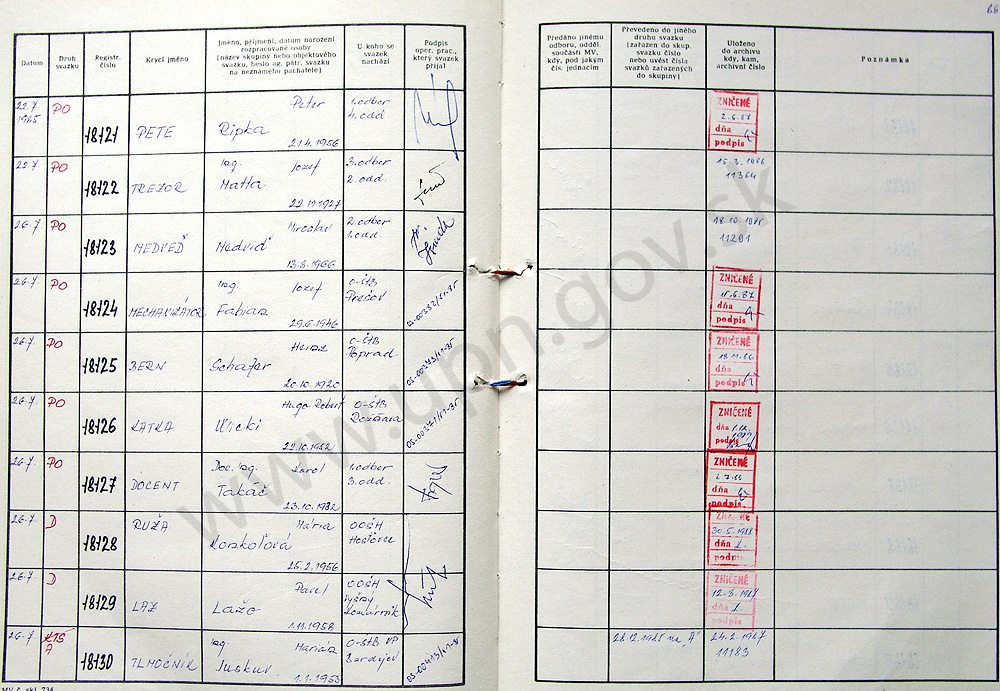 68
Datum
Druh svazku
Registr. číslo
Krycí jméno
Jméno, příjmení, datum narození
rozpracované osoby
(název skupiny nebo objektového
svazku, heslo ag. pátr. svazku
na neznámého pachatele)
U koho se
svazek
nachází
Podpis
oper. prac.,
který svazek
přijal
Předáno jinému
odboru, odděl.
součásti MV,
kdy, pod jakým
čís. jednacím
Převedeno do jiného
druhu svazku
(zařazen do skup.
svazku číslo
nebo uvést čísla
svazků zařazených
do skupiny)
Uloženo
do archivu
kdy, kam,
archivní číslo
Poznámka
22.7 1985 PO 18121 PETE Peter Ripka 21.4.1956 1.odbor 4.odd
ZNIČENÉ
2.6.87
dňa
podpis
22.7. PO 18122 TREZOR Ing. Jozef Matta 22.11.1927 3.odbor 2.odd.
15.3.1986
11364
26.7. PO 18123 MEDVEĎ Miroslav Medviď 13.8.1966 2.odbor 1.odd.
18.10.1985
11291
26.7. PO 18124 MECHANIZÁTOR Ing. Jozef Fabian 29.6.1946 O-ŠtB Prešov
ZNIČENÉ
15.6.87
dňa
podpis
26.7. PO 18125 BERN Heinz Schäfer 20.10.1920 O-ŠtB Poprad
ZNIČENÉ
18.11.86
dňa
podpis
26.7. PO 18126 KATKA Hugo Robert Wicki O-ŠtB Rožňava
ZNIČENÉ
dňa
podpis
26.7. PO 18127 DOCENT Doc. Ing. Karol Takáč 23.10.1932 1.odbor 3.odd.
ZNIČENÉ
dňa
podpis
26.7. D 18128 RUŽA Mária 25.2.1956 OOŠH
30.5.1988
dňa
podpis
26.7 D 18129 LAZ Pavel Lažo 1.11.1958 OOŠH Vyšný Komárnik
ZNIČENÉ
dňa
podpis
26.7. KTS A 18130 TLMOČNÍK Ing. Marián 1.1.1953 O-ŠtB VP Bardejov
28.12.1985 na „A“
24.2.1987
11183
www.upn.gov.sk